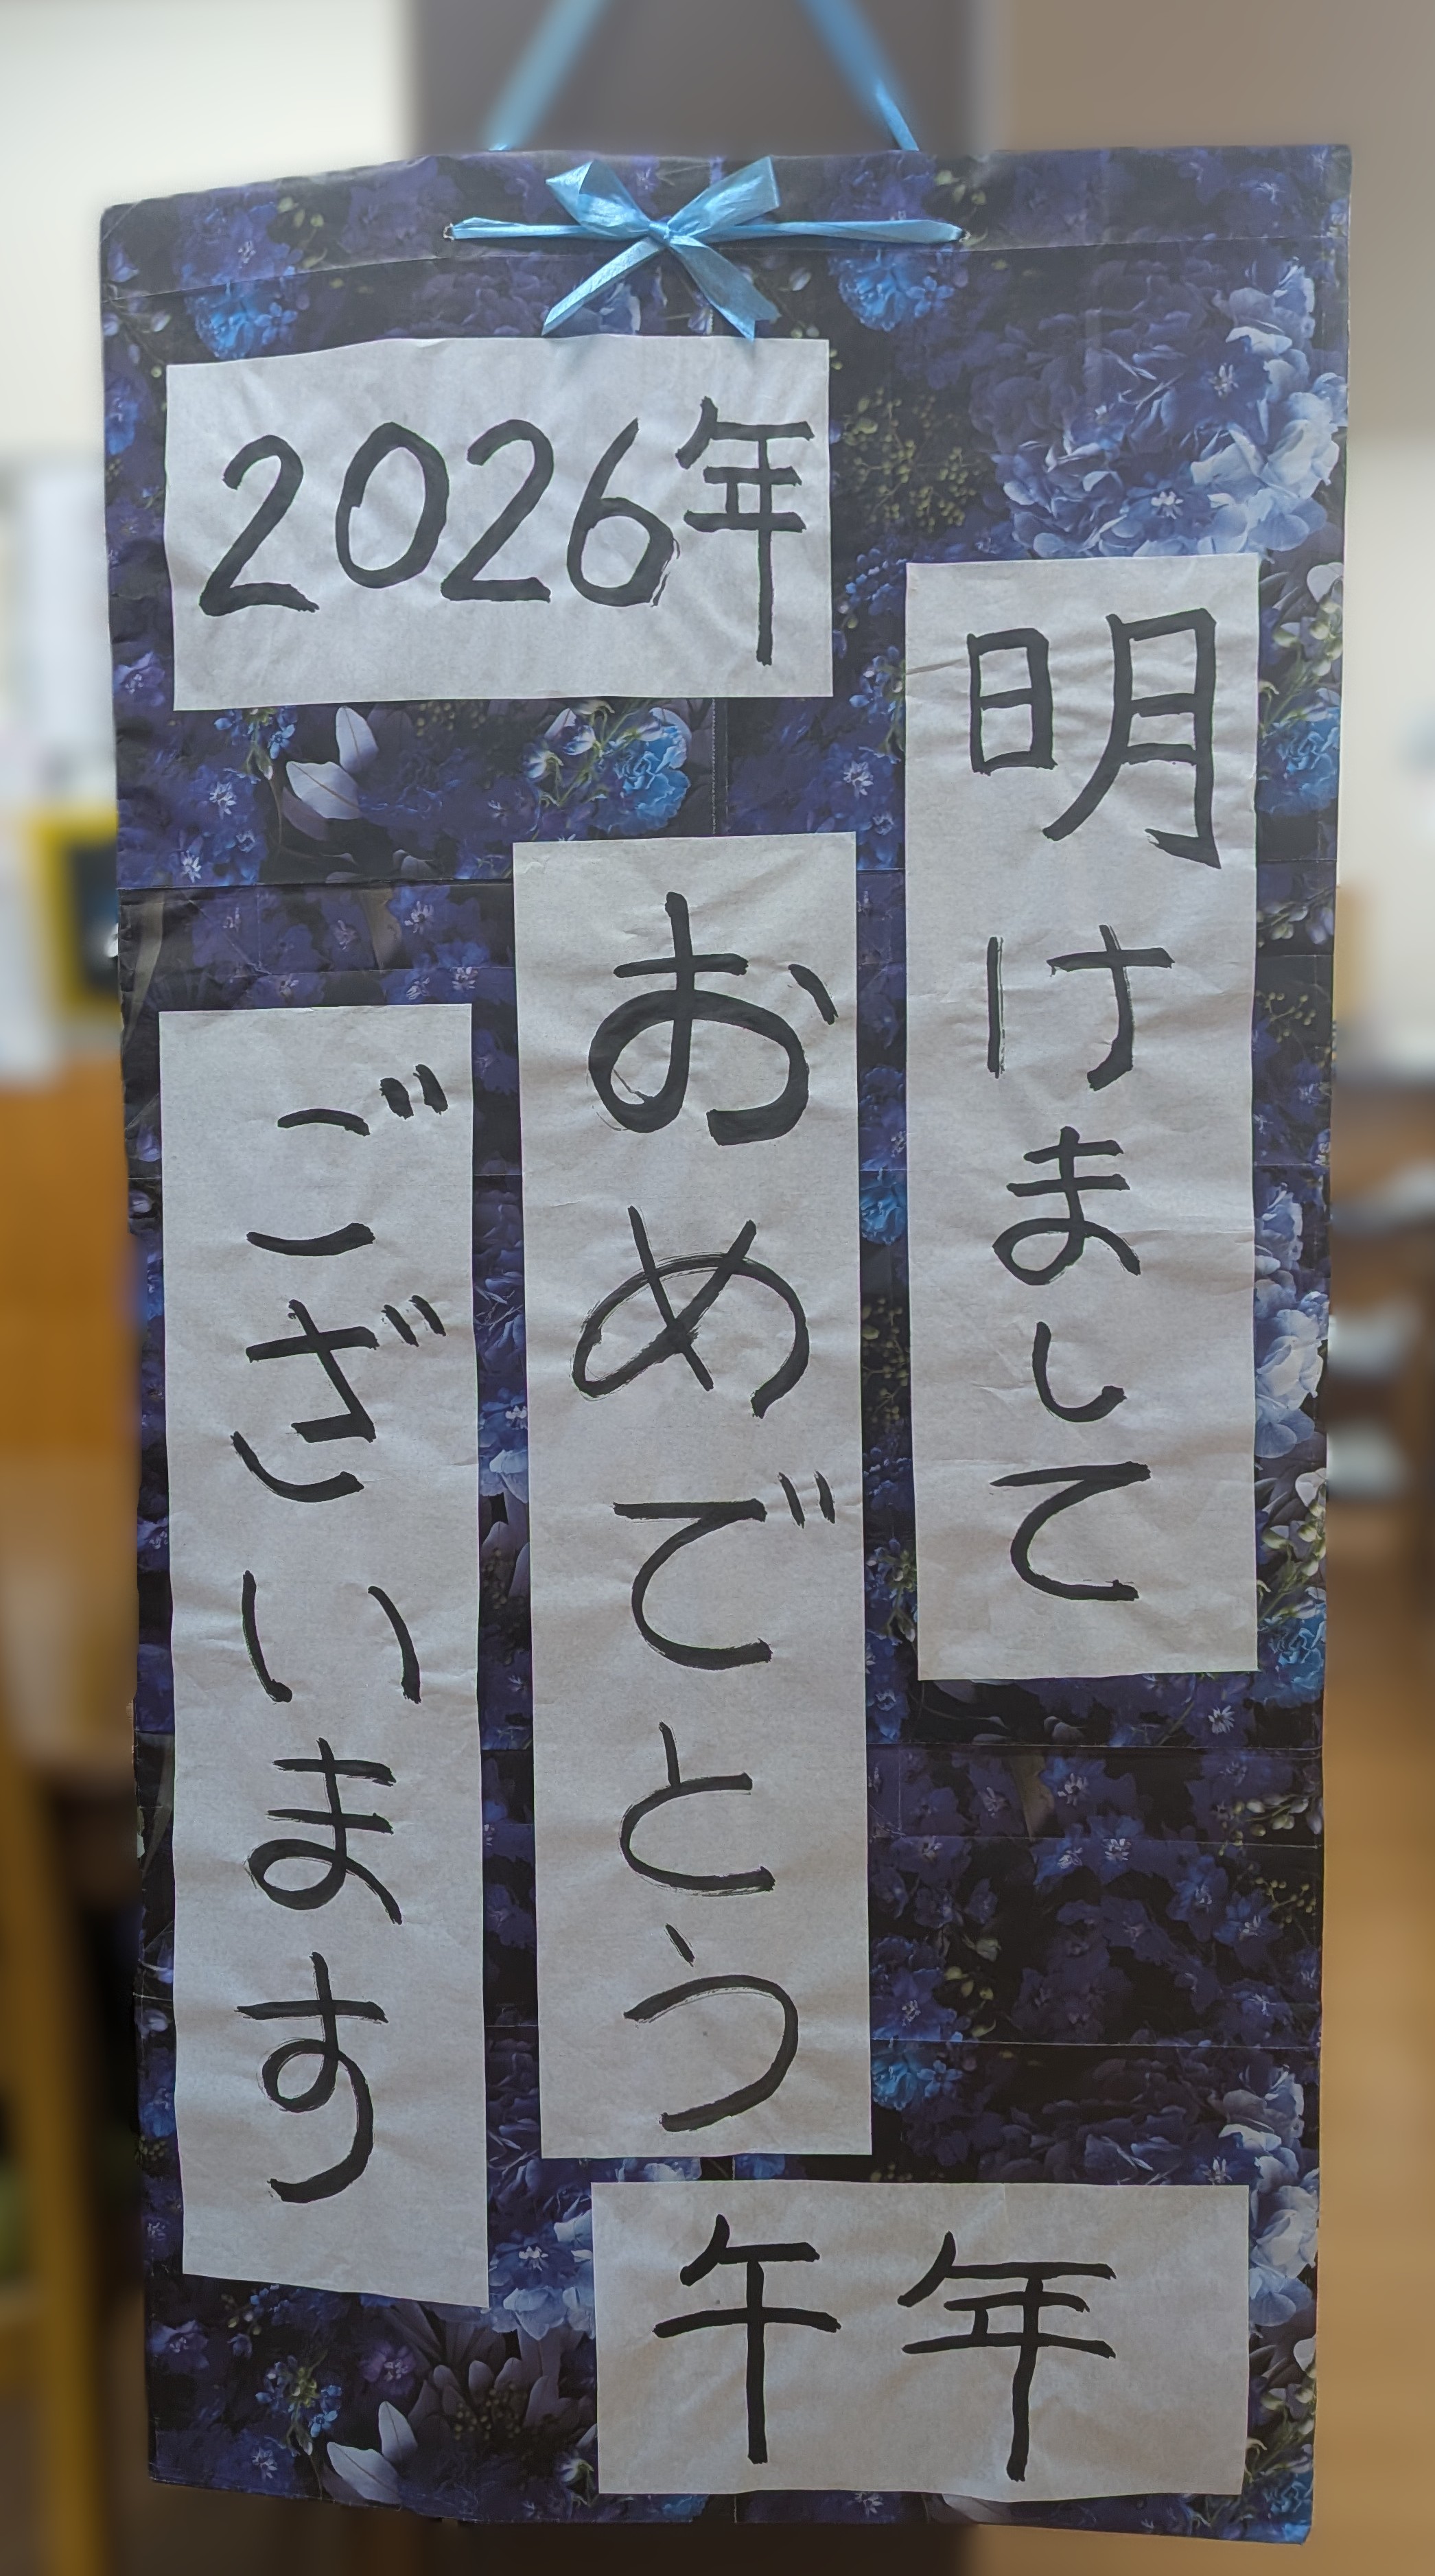 2026年
明けまして
おめでとう
ございます
午年